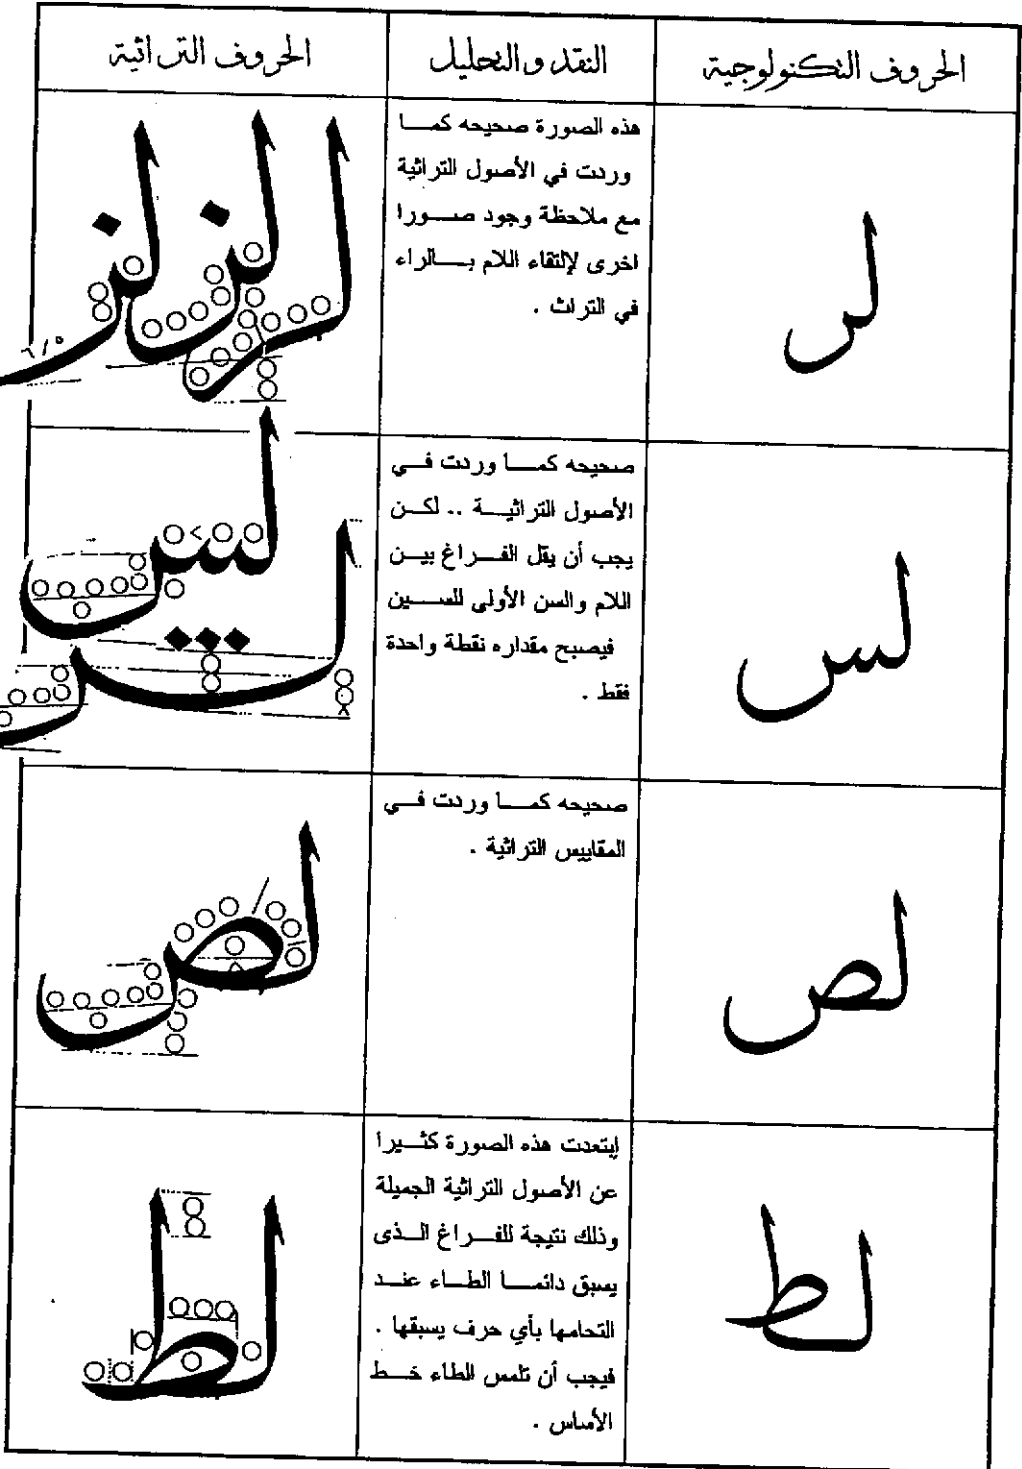 الحروف التكنولوجية
النقد والتحليل
الحروف التراثية
لر
هذه الصورة صحيحه كمــا
وردت في الأصول التراثية
مع ملاحظة وجود صـــورا
اخرى لإلتقاء اللام بـــالراء
في التراث .
لر
لز
لز
٦/٥
لس
صحيحه كمـــا وردت فـــي
الأصول التراثيـــة .. لكـــن
يجب أن يقل الفـــراغ بيـــن
اللام والسن الأولى للســـين
فيصبح مقداره نقطة واحدة
فقط .
لس
لس
لص
صحيحه كمـــا وردت فـــي
المقاييس التراثية .
لص
لط
إبتعدت هذه الصورة كثـــيرا
عن الأصول التراثية الجميلة
وذلك نتيجة للفـــراغ الـــذى
يسبق دائمـــا الطـــاء عنـــد
التحامها بأي حرف يسبقها .
فيجب أن تلمس الطاء خـــط
الأساس .
لط